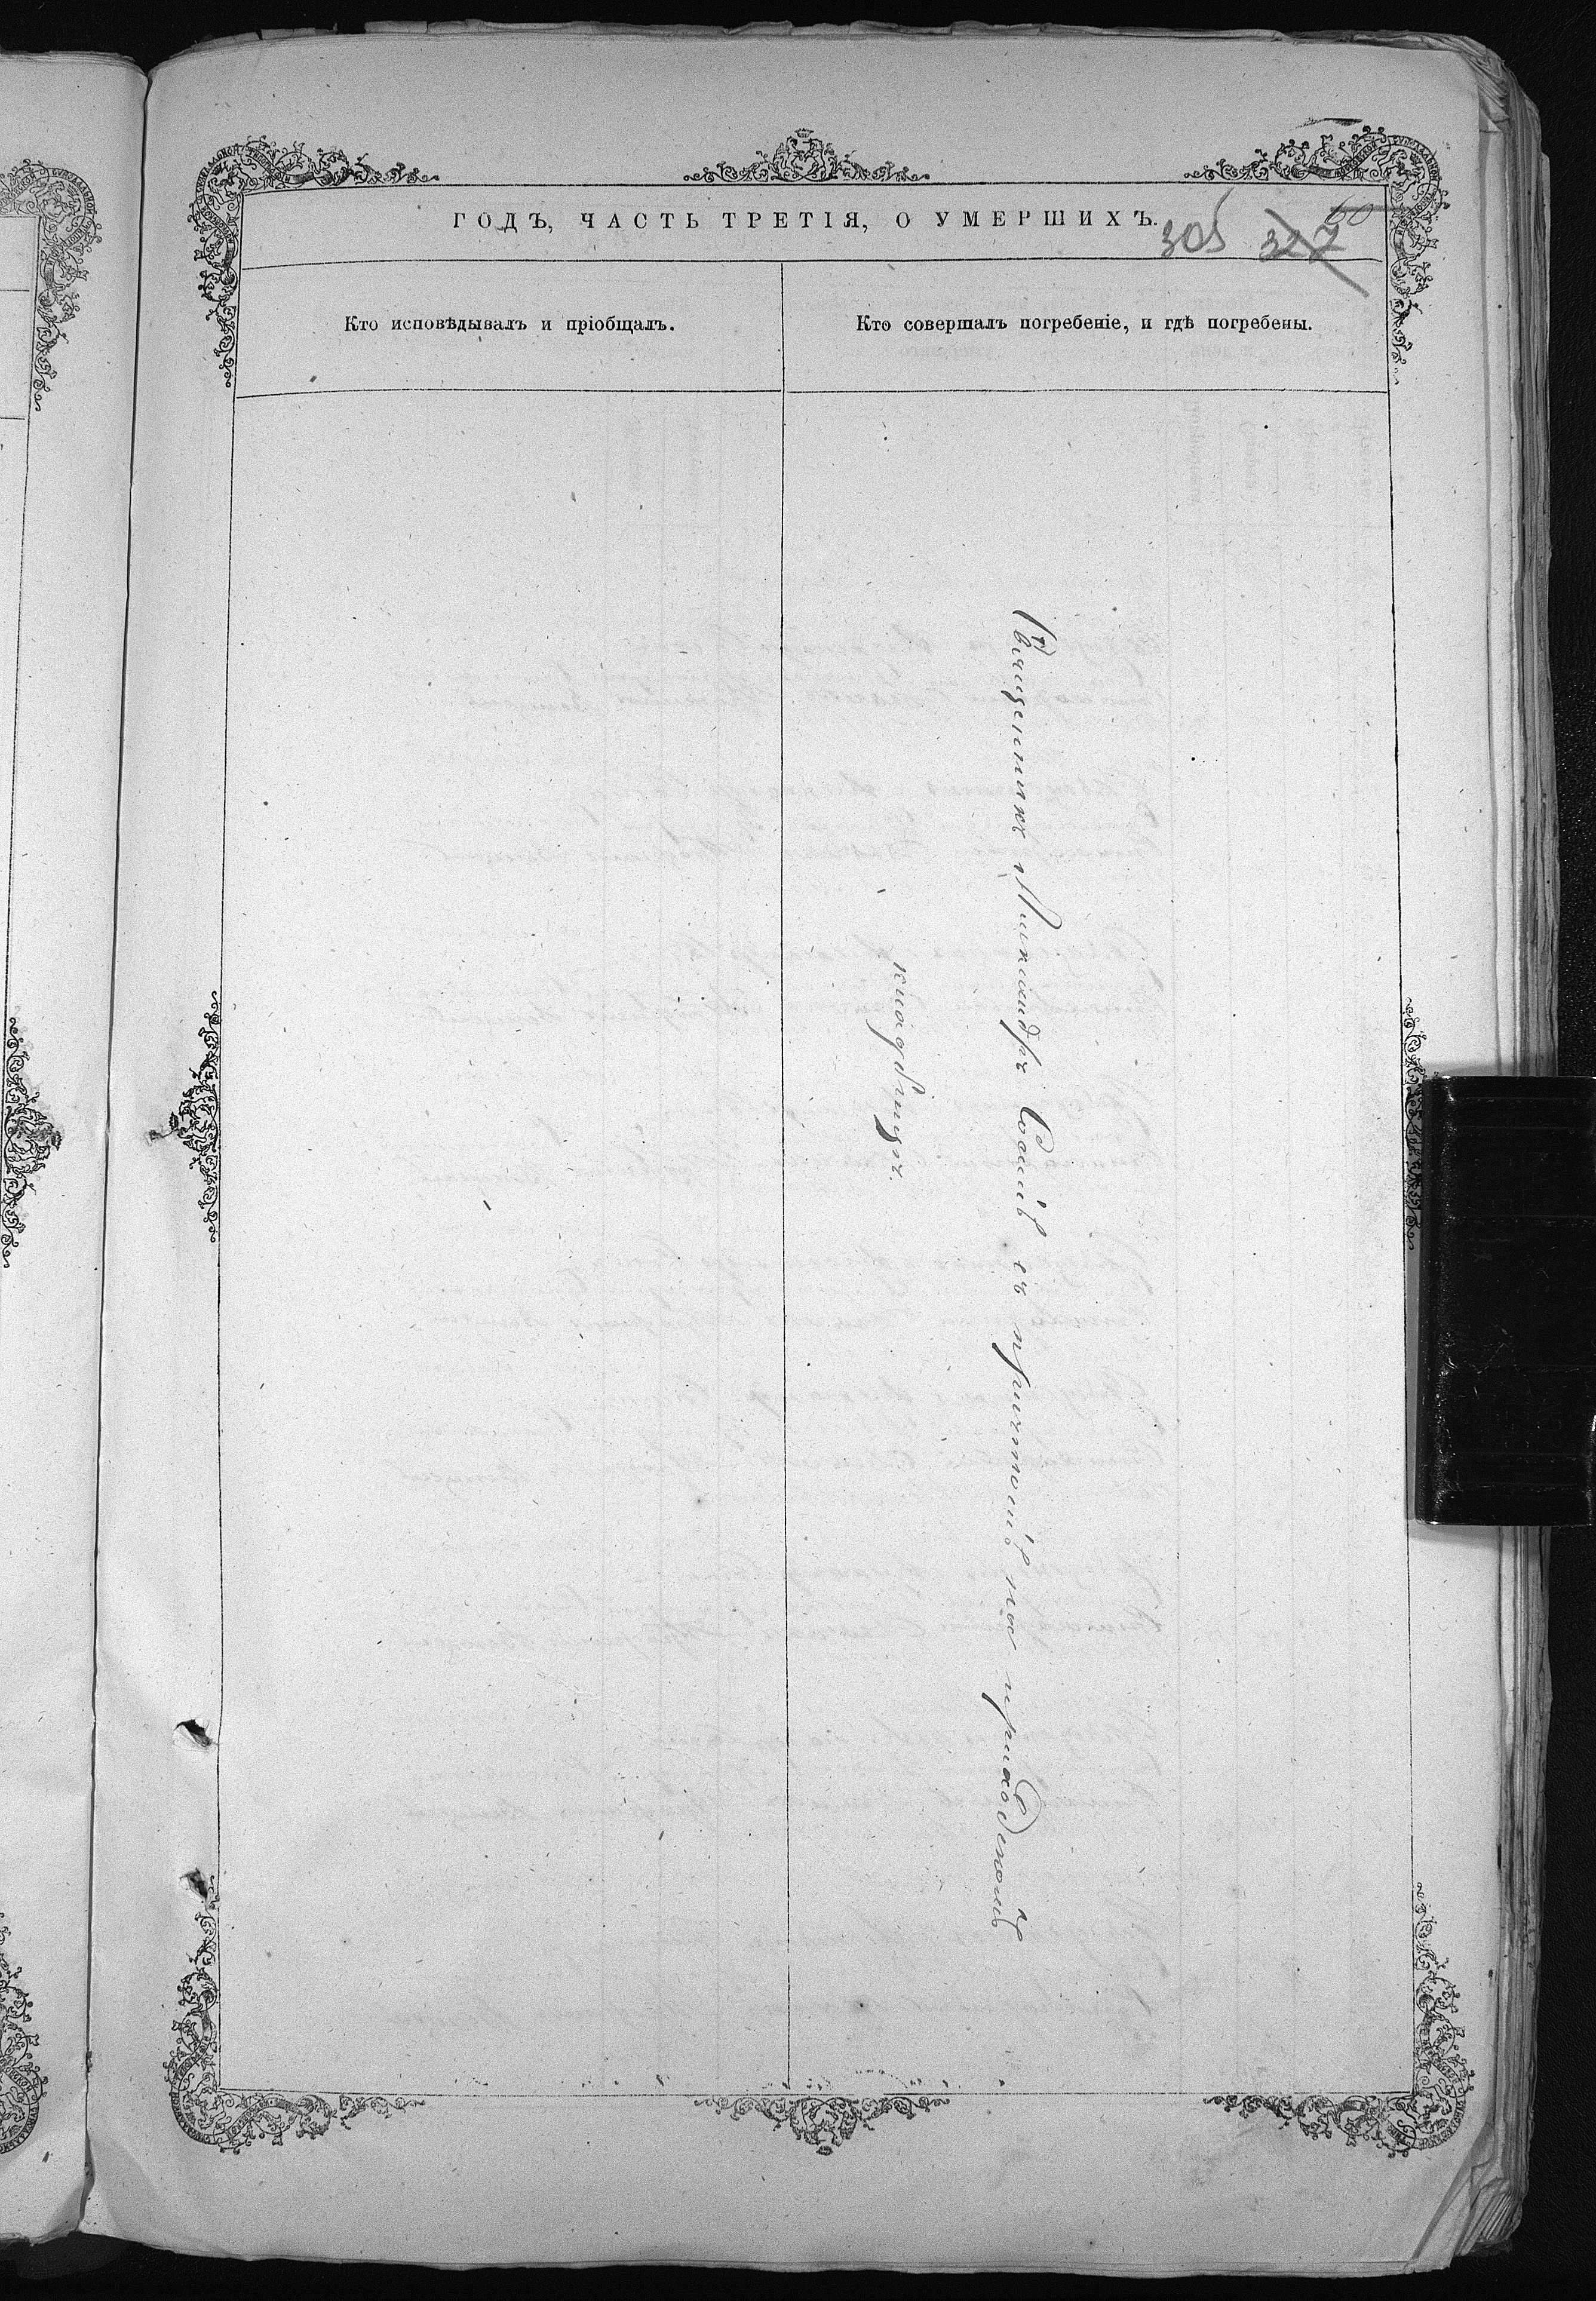 ГОДЪ, ЧАСТЬ ТРЕТІЯ, О УМЕРШИХЪ.
305 327 60
Кто исповѣдывалъ и пріобщалъ.
Кто совершалъ погребеніе, и гдѣ погребены.
Священникъ Александръ съ причтомъ на приходскомъ
кладбищѣ.